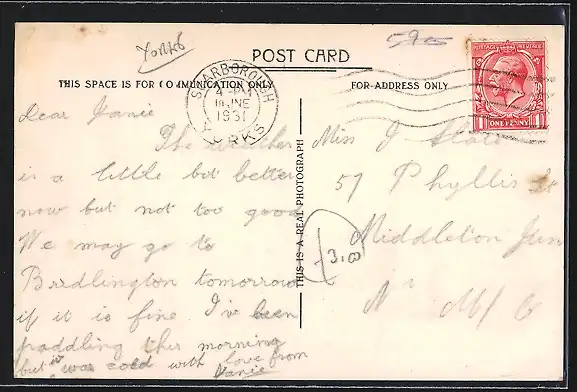 Yorks
59
POST CARD
POSTAGE REVENUE
ONE PENNY
THIS SPACE IS FOR COMMUNICATION ONLY
FOR ADDRESS ONLY
SCARBOROUGH
YORKS
4
10 JNE
1931
THIS IS A REAL PHOTOGRAPH
Dear Janie
The weather
is a little bit better
now but not too good
We may go to
Bridlington tomorrow
if it is fine. I've been
paddling this morning
but it was cold with love from
Miss J
57 Phyllis St
Middleton Jun
Nr M/C
3,00